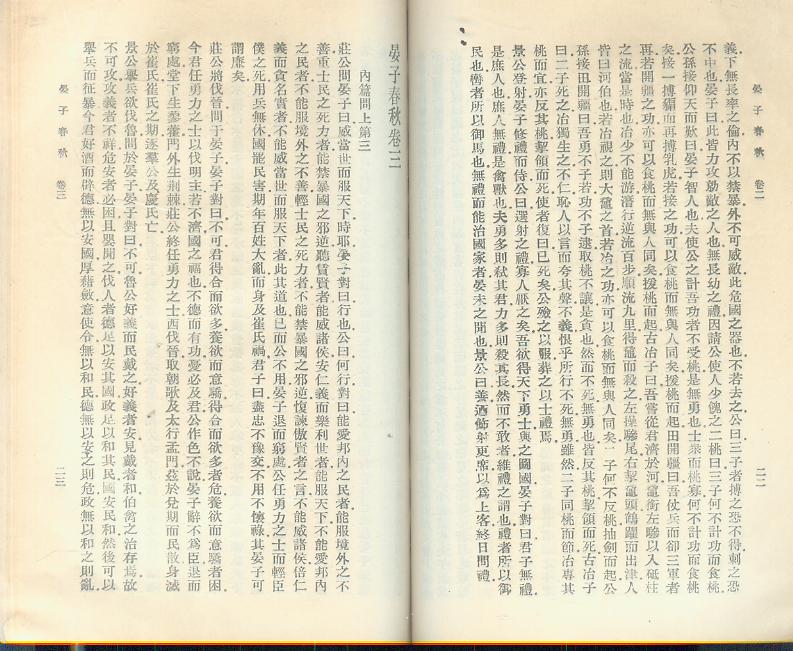 晏子春秋 卷二 二二
義下無長率之倫內不以禁暴外不可威敵此危國之器也不若去之公曰三子者搏之恐不得刺之恐
不中也晏子曰此皆力攻勍敵之人也無長幼之禮因請公使人少餽之二桃曰三子何不計功而食桃
公孫接仰天而歎曰晏子智人也夫使公之計吾功者不受桃是無勇也士衆而桃寡何不計功而食桃
矣接一搏猏而再搏乳虎若接之功可以食桃而無與人同矣援桃而起田開疆曰吾仗兵而卻三軍者
再若開疆之功亦可以食桃而無與人同矣援桃而起古冶子曰吾嘗從君濟於河黿銜左驂以入砥柱
之流當是時也冶少不能游潛行逆流百步順流九里得黿而殺之左操驂尾右挈黿頭鶴躍而出津人
皆曰河伯也若冶視之則大黿之首若冶之功亦可以食桃而無與人同矣二子何不反桃抽劍而起公
孫接田開疆曰吾勇不子若功不子逮取桃不讓是貪也然而不死無勇也皆反其桃挈領而死古冶子
曰二子死之冶獨生之不仁恥人以言而夸其聲不義恨乎所行不死無勇雖然二子同桃而節冶專其
桃而宜亦反其桃挈領而死使者復曰已死矣公殮之以服葬之以士禮焉
景公登射晏子修禮而侍公曰選射之禮寡人厭之矣吾欲得天下勇士與之圖國晏子對曰君子無禮
是庶人也庶人無禮是禽獸也夫勇多則弒其君力多則殺其長然而不敢者維禮之謂也禮者所以御
民也轡者所以御馬也無禮而能治國家者晏未之聞也景公曰善迺飾射更席以爲上客終日問禮
晏子春秋卷三
內篇問上第三
莊公問晏子曰威當世而服天下時耶晏子對曰行也公曰何行對曰能愛邦內之民者能服境外之不
善重士民之死力者能禁暴國之邪逆聽賃賢者能威諸侯安仁義而樂利世者能服天下不能愛邦內
之民者不能服境外之不善輕士民之死力者不能禁暴國之邪逆愎諫傲賢者之言不能威諸侯倍仁
義而貪名實者不能威當世而服天下者此其道也已而公不用晏子退而窮處公任勇力之士而輕臣
僕之死用兵無休國罷民害期年百姓大亂而身及崔氏禍君子曰盡忠不豫交不用不懷祿其晏子可
謂廉矣
莊公將伐晉問于晏子晏子對曰不可君得合而欲多養欲而意驕得合而欲多者危養欲而意驕者困
今君任勇力之士以伐明主若不濟國之福也不德而有功憂必及君公作色不說晏子辭不爲臣退而
窮處堂下生蓼藿門外生荆棘莊公終任勇力之士西伐晉取朝歌及太行孟門茲於兌期而民散身滅
於崔氏崔氏之期逐羣公及慶氏亡
景公舉兵欲伐魯問於晏子晏子對曰不可魯公好義而民戴之好義者安見戴者和伯禽之治存焉故
不可攻攻義者不祥危安者必困且嬰聞之伐人者德足以安其國政足以和其民國安民和然後可以
舉兵而征暴今君好酒而辟德無以安國厚藉斂意使令無以和民德無以安之則危政無以和之則亂
晏子春秋 卷三 二三